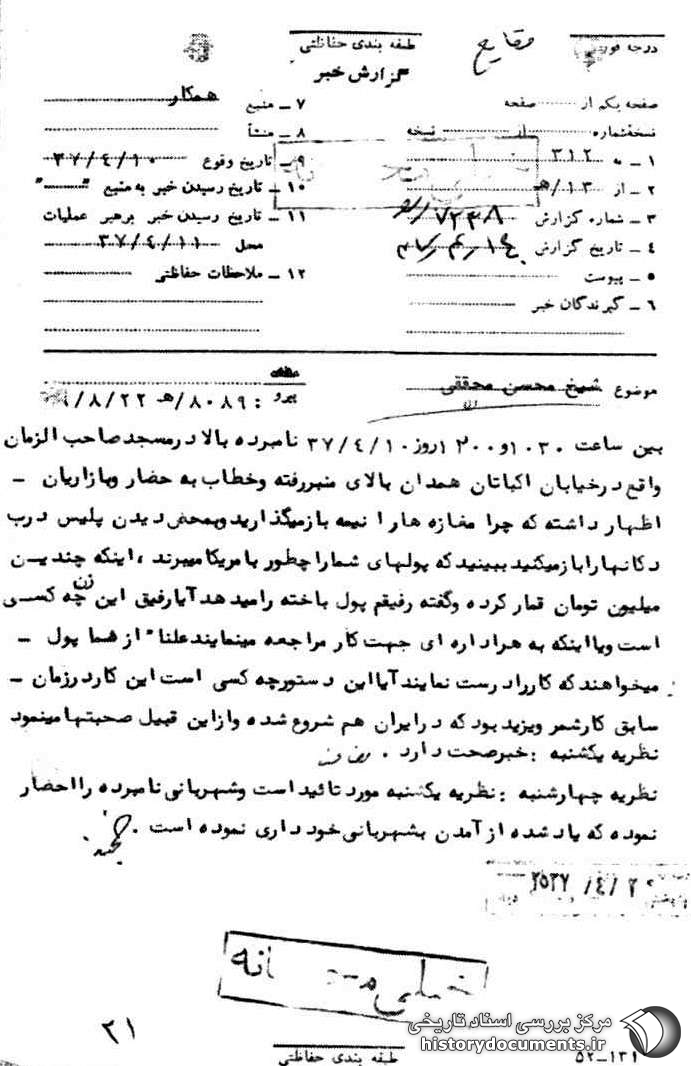 درجه فوریت
طبقه بندی حفاظتی
گزارش خبر
صفحه یکم از ........ صفحه
نسخهشماره ........ از ........ نسخه
۱ ـ به ۳۱۲
۲ ـ از ۱۳/هـ
۳ ـ شماره گزارش ۷۲۳۸
۴ ـ تاریخ گزارش
۵ ـ پیوست
۶ ـ گیرندگان خبر
۷ ـ منبع همکار
۸ ـ منشأ
۹ ـ تاریخ وقوع ۳۷/۴/۱۰
۱۰ ـ تاریخ رسیدن خبر به منبع " "
۱۱ ـ تاریخ رسیدن خبر برهبر عملیات
محل ۳۷/۴/۱۱
۱۲ ـ ملاحظات حفاظتی
موضوع شیخ محسن محققی
پیرو : ۸۰۸۹/هـ
بین ساعت ۱۰۳۰ و ۱۲۰۰ روز ۳۷/۴/۱۰ نامبرده بالا در مسجد صاحب الزمان
واقع در خیابان اکباتان همدان بالای منبر رفته وخطاب به حضار وبازاریان ـ
اظهار داشته که چرا مغازه ها را نیمه باز میگذارید وبمحض دیدن پلیس درب
دکانها را باز میکنید ببینید که پولهای شما را چطور بامریکا میبرند ، اینکه چندین
میلیون تومان قمار کرده وگفته رفیقم پول باخته را میدهد آیا رفیق این زن چه کسی
است ویا اینکه به هر اداره ای جهت کار مراجعه مینمایند علنا" از شما پول ـ
میخواهند که کار را درست نمایند آیا این دستور چه کسی است این کار در زمان ـ
سابق کار شمر ویزید بود که در ایران هم شروع شده واز این قبیل صحبتها مینمود
نظریه یکشنبه : خبر صحت دارد .
نظریه چهارشنبه : نظریه یکشنبه مورد تائید است وشهربانی نامبرده را احضار
نموده که یاد شده از آمدن بشهربانی خود داری نموده است .
۲۵۳۷/۴/۲
۲۱
طبقه بندی حفاظتی
۵۲-۱۳۱
مرکز بررسی اسناد تاریخی
historydocuments.ir